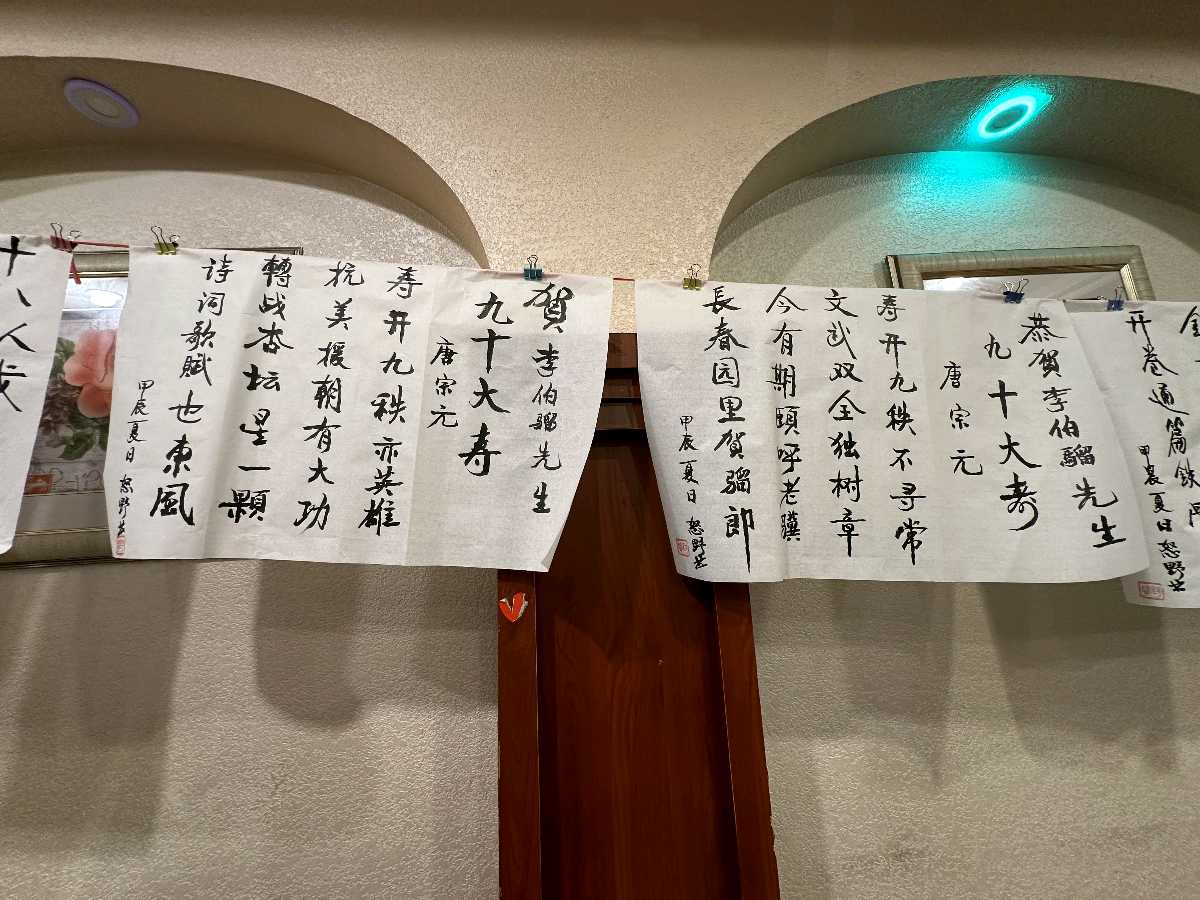 恭贺李伯骝先生
九十大寿
唐宗元
寿开九秩不寻常
文武双全独树章
今有期頤呼老驥
長春园里贺骝郎
甲辰夏日 恕野
賀李伯骝先生
九十大寿
唐宗元
寿开九秩亦英雄
抗美援朝有大功
轉战杏坛星一颗
诗词歌赋也東風
甲辰夏日 恕野
开卷通篇铁
甲辰夏日恕野
十八人成